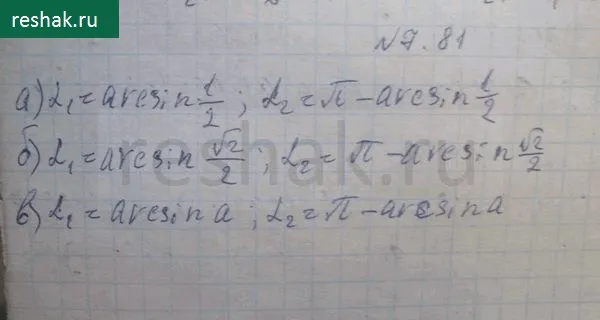 reshak.ru
№7.81
а) α₁ = arcsin 1/2 ; α₂ = π - arcsin 1/2
б) α₁ = arcsin √2/2 ; α₂ = π - arcsin √2/2
в) α₁ = arcsin a ; α₂ = π - arcsin a
reshak.ru